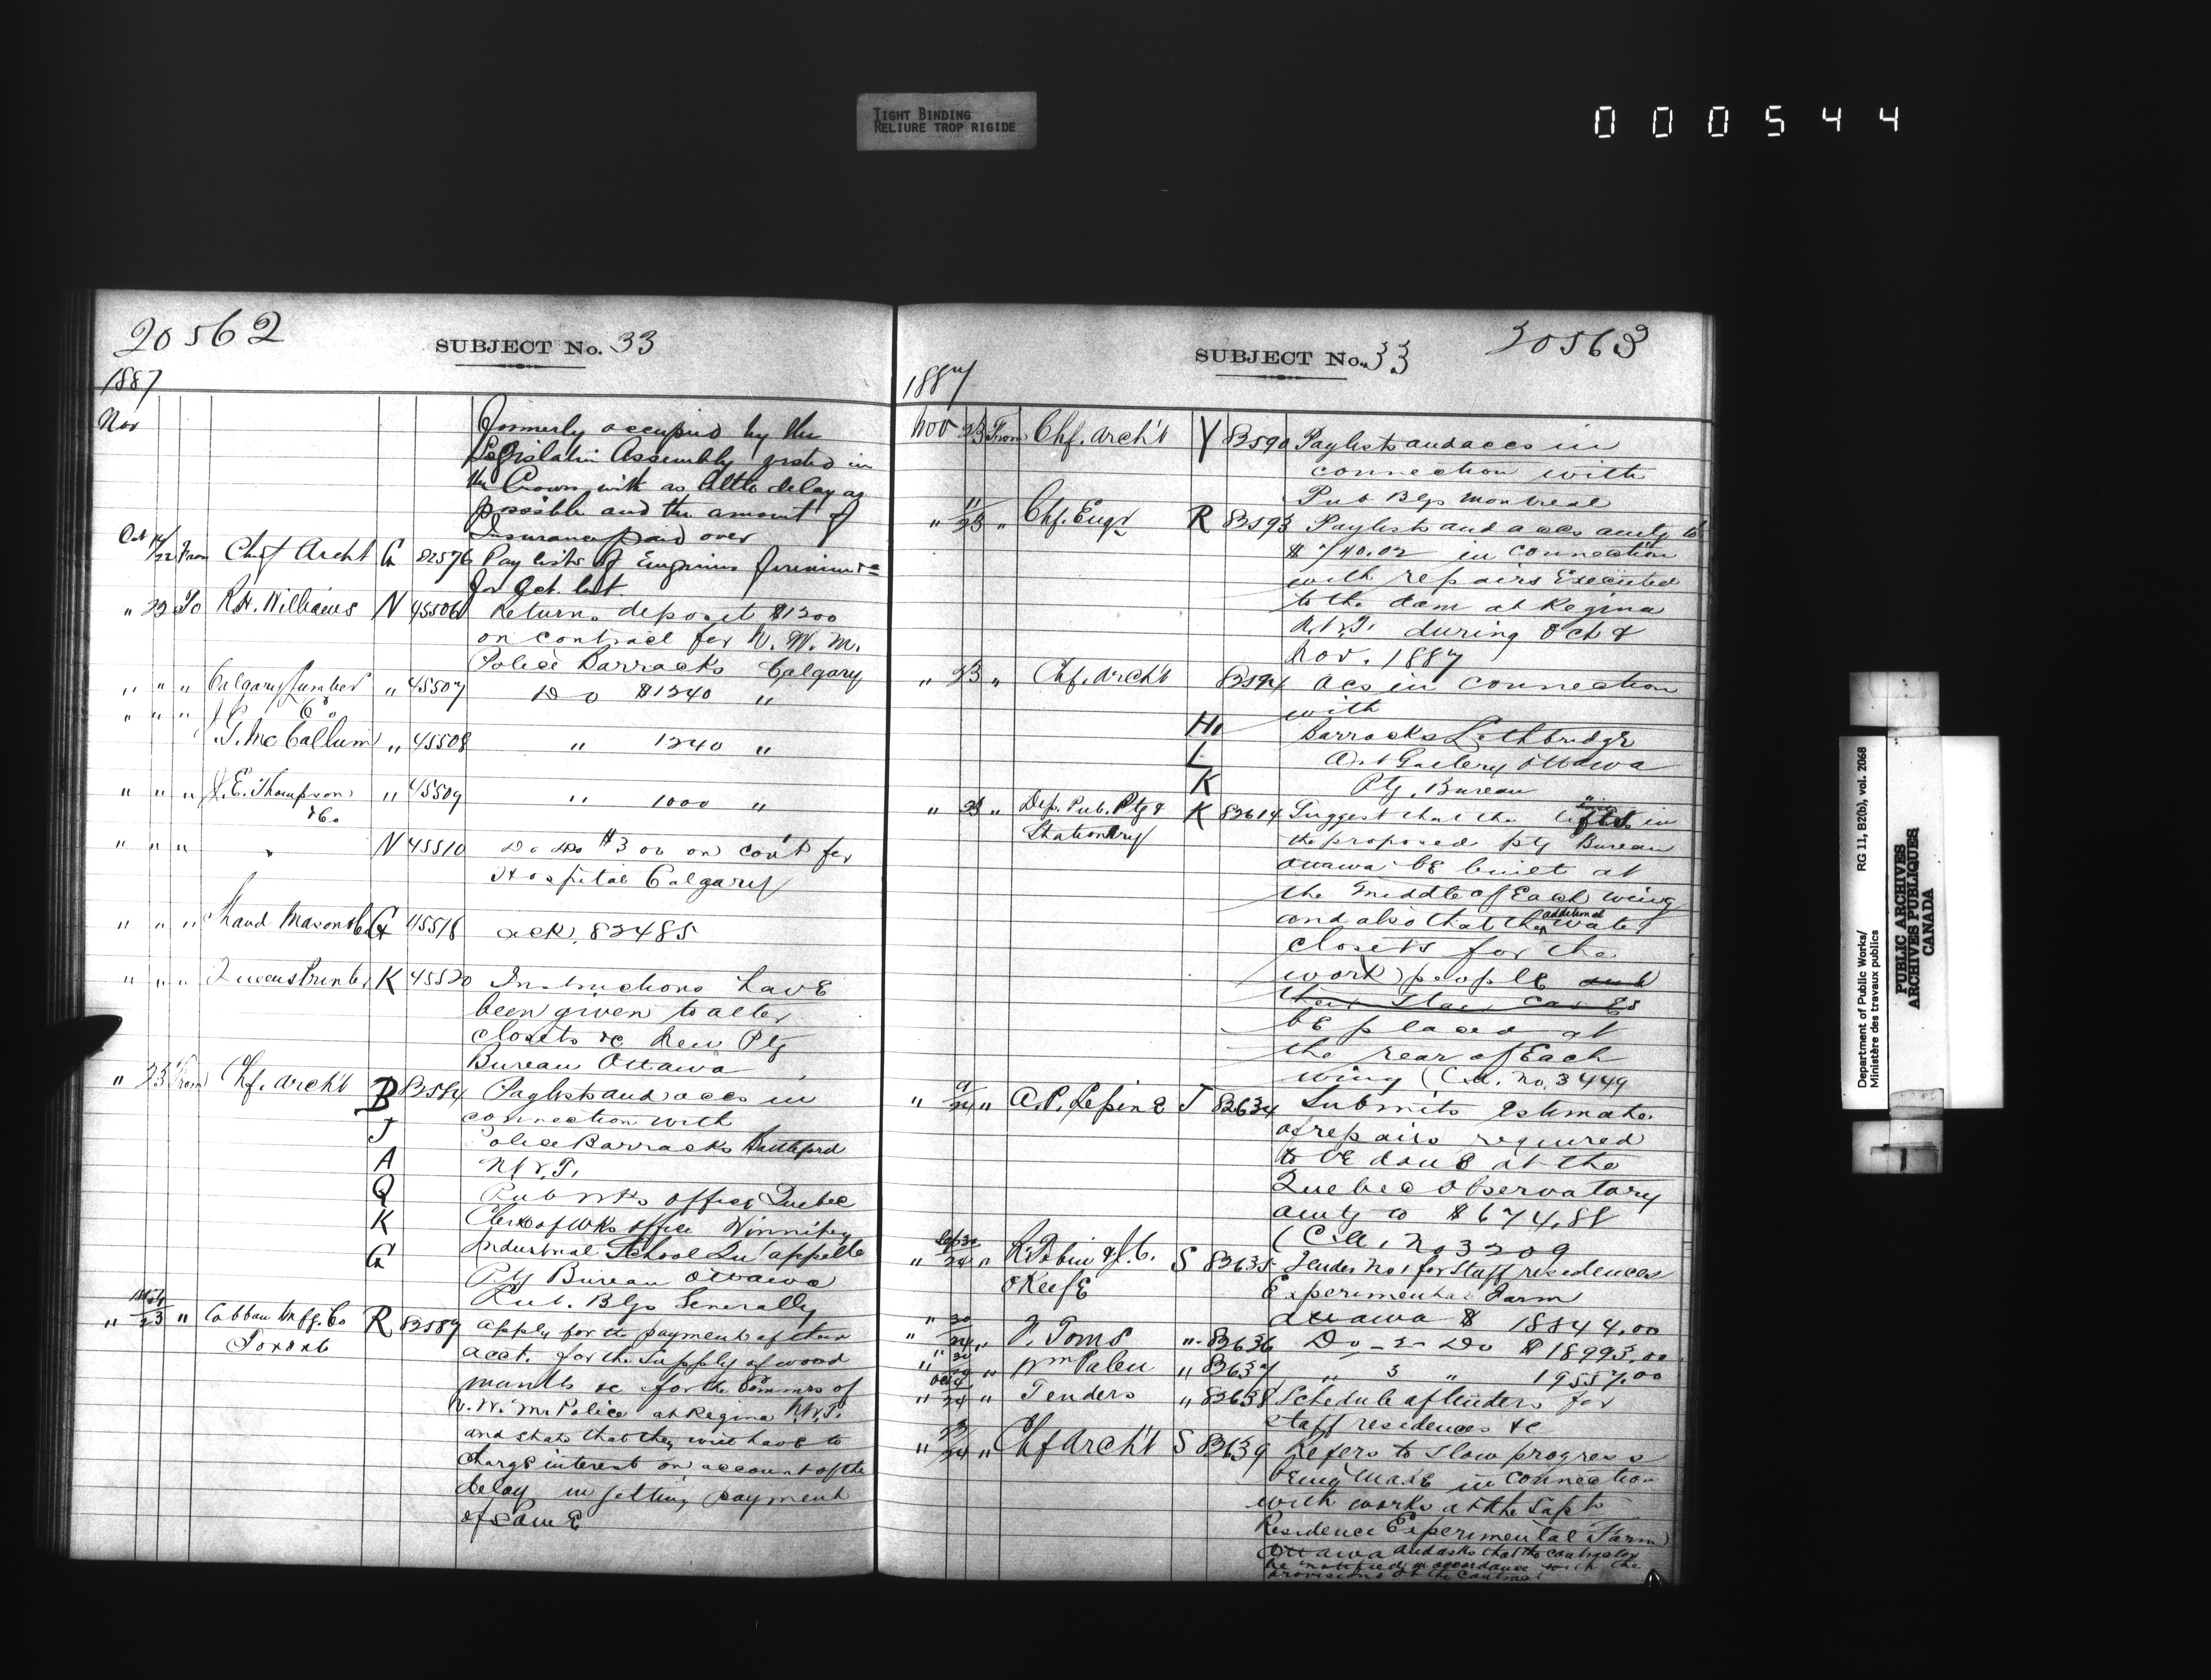 TIGHT BINDING
RELIURE TROP RIGIDE
000544
20562
SUBJECT No. 33
1887
Nov
formerly occupied by the
Legislative Assembly in
the Crown with as little delay as
possible and the amount of
Insurance paid over
Oct 14/22 From Chief Archt G 82576 Pay lists of Engineers Firemen &c
for Oct. last
" 22 To R.H. Williams N 45506 Return deposit $1200
on contract for N. W. M.
Police Barracks Calgary
" " " Calgary Lumber Co " 45507 Do $1240 "
" " " J. McCallum " 45508 " 1240 "
" " " J.E. Thompson &Co " 45509 " 1000 "
" " " " N 45510 Do Do $300 on cont for
Hospital Calgary
" " " Shand Mason &Co G 45518 ack. 82485
" " " Queens Printer K 45520 Instructions have
been given to alter
closets &c New Ptg
Bureau Ottawa
" 23 From Chf. Arch't B 82584 Paylists and accs in
connection with
J Police Barracks Battleford
A N.W.T.
Q Pub Wks office Quebec
K Clerk of Wks office Winnipeg
G Industrial School Qu'appelle
Ptg Bureau Ottawa
Pub. Blgs Generally
" 23 " Cobban Mfg. Co R 82589 apply for the payment of their
Toronto
acct. for the supply of wood
mantls &c for the Commrs of
N.W.M. Police at Regina N.W.T.
and state that they will have to
charge interest on account of the
delay in getting payment
of same
20563
SUBJECT No. 33
1887
Nov 23 From Chf. Arch't Y 82590 Paylists and accs in
connection with
Pub Blgs Montreal
" 11/23 " Chf. Engr R 82593 Paylists and accs amtg to
$740.02 in connection
with repairs Executed
to the dam at Regina
N.W.T. during Oct &
Nov. 1887
" 23 " Chf. Arch't 82594 accs in connection
with
H Barracks Lethbridge
L Art Gallery Ottawa
K Ptg. Bureau
" 23 " Dep. Pub. Ptg & K 82614 Suggest that the lifts in
Stationery
the proposed ptg Bureau
Ottawa be built at
the middle of Each wing
and also that the additional water
closets for the
work people and
their stair cases
be placed at
the rear of Each
wing (C.A. No. 3449
" 9/24 " A.P. Lepine J 82634 Submits Estimate
of repairs required
to be done at the
Quebec Observatory
amtg to $674.88
(C.A. No 3209
" Sep 30/24 " R. Tobin & J.C. S 82635 Tender No 1 for Staff residences
OKeefe
Experimental Farm
Ottawa $ 18844.00
" 30/24 " F. Toms " 82636 Do - 2 - Do $18993.00
" 30/24 " Wm Palen " 82637 " 3 " 19557.00
" Oct 4/24 " Tenders " 82638 Schedule of tenders for
staff residences &c
" 23/24 " Chf Arch't S 82639 Refers to slow progress
being made in connection
with works at the Supts
Residence Experimental Farm
Ottawa and asks that the contractor
be notified in accordance with the
provisions of the contract
Department of Public Works/
Ministère des travaux publics
RG 11, B2(b), vol. 2068
PUBLIC ARCHIVES
ARCHIVES PUBLIQUES
CANADA